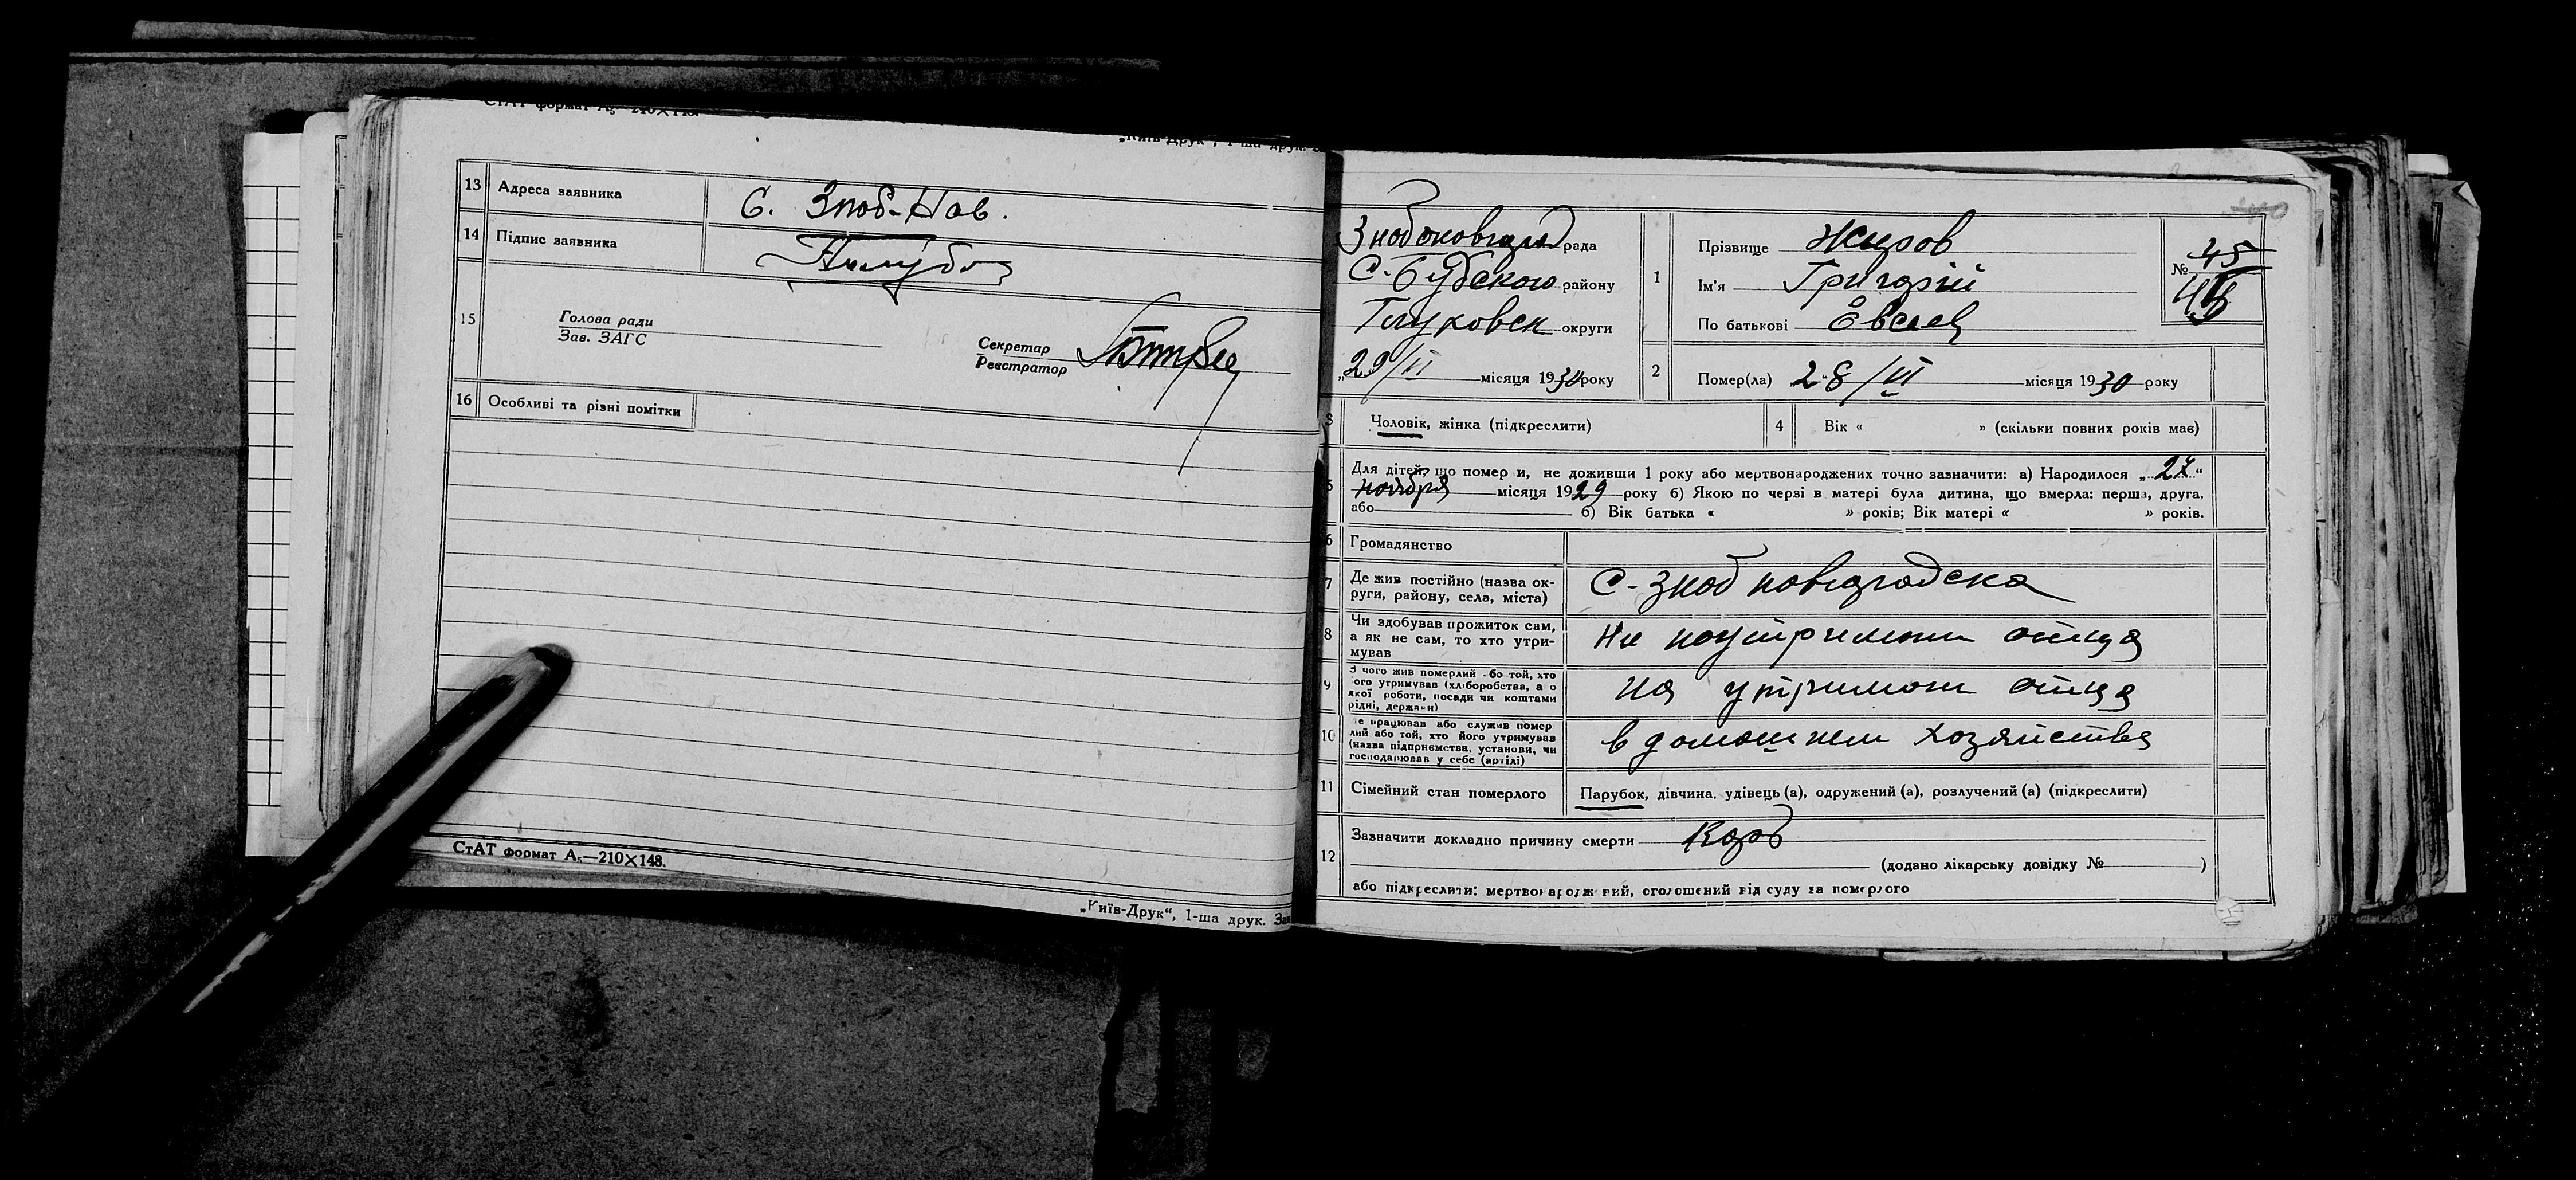 СтАТ формат А₅—210×148.
„Київ-Друк", 1-ша друк.
13 Адреса заявника С. Зноб-Нов.
14 Підпис заявника
15 Голова ради
Зав. ЗАГС
Секретар
Реєстратор
16 Особливі та різні помітки
СтАТ формат А₅—210×148.
„Київ-Друк“, 1-ша друк. Зам
Знобоновгород рада
С-Будского району
Глуховск округи
29/III місяця 1930 року
1 Прізвище Жиров
Ім'я Григорій
По батькові Євсеев
№ 45
2 Помер(ла) 28/III місяця 1930 року
3 Чоловік, жінка (підкреслити)
4 Вік « » (скільки повних років має)
5 Для дітей, що померли, не доживши 1 року або мертвонароджених точно зазначити: а) Народилося „ 27 “
ноября місяця 1929 року б) Якою по черзі в матері була дитина, що вмерла: перша, друга,
або б) Вік батька « » років; Вік матері « » років.
6 Громадянство
7 Де жив постійно (назва ок-
руги, району, села, міста) С-Зноб новгородска
8 Чи здобував прожиток сам,
а як не сам, то хто утри-
мував отца
9 З чого жив померлий або той, хто
його утримував (хліборобства, а о
якої роботи, посади чи коштами
рідні, держави) на утримани отца
10 Де працював або служив помер
лий або той, хто його утримував
(назва підприємства, установи, чи
господарював у себе (артілі) в домашнем хозяйстве
11 Сімейний стан померлого Парубок, дівчина, удівець (а), одружений (а), розлучений (а) (підкреслити)
12 Зазначити докладно причину смерти
(додано лікарську довідку № )
або підкреслити: мертвонароджений, оголошений від суду за померлого